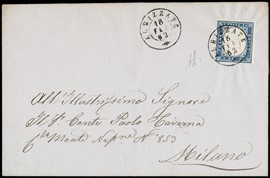 ALBIZZATE
16
FEB
ALBIZZATE
16
All' Illustrissimo Signore
Il S.r Conte Paolo Taverna
C.da Monte Nap.ne N.° 853
Milano